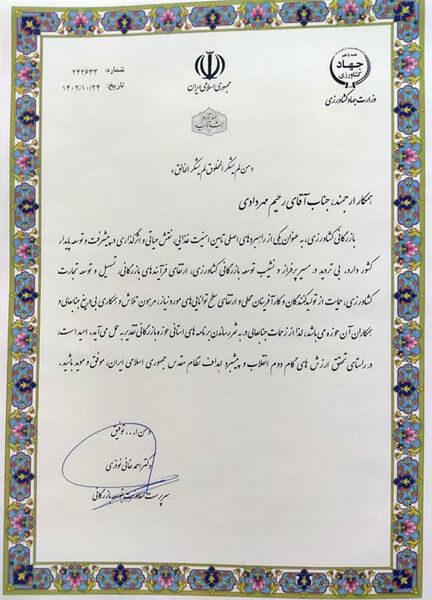 همه با هم
جهاد
کشاورزی
وزارت جهاد کشاورزی
جمهوری اسلامی ایران
شماره: ۲۴۲۶۳۳
تاریخ: ۱۴۰۲/۱۰/۲۴
«من لم یشکر المخلوق لم یشکر الخالق»
همکار ارجمند، جناب آقای رحیم مهردادی
بازرگانی کشاورزی، به عنوان یکی از راهبردهای اصلی تامین امنیت غذایی، نقش حیاتی و اثرگذاری در پیشرفت و توسعه پایدار
کشور دارد. بی تردید در مسیر پرفراز و نشیب توسعه بازرگانی کشاورزی، ارتقای فرآیندهای بازرگانی، تسهیل و توسعه تجارت
کشاورزی، حمایت از تولیدکنندگان و کارآفرینان محلی و ارتقای سطح توانایی‌های مورد نیاز، مرهون تلاش و همکاری بی دریغ جنابعالی و
همکاران آن حوزه می‌باشد، لذا از زحمات جنابعالی در به ثمر رساندن برنامه های استانی حوزه بازرگانی تقدیر به عمل می‌آید. امید است،
در راستای تحقق ارزش های گام دوم انقلاب و پیشبرد اهداف نظام مقدس جمهوری اسلامی ایران، موفق و موید باشید.
و من ا... توفیق
دکتر احمد خانی نوذری
سرپرست معاونت توسعه بازرگانی